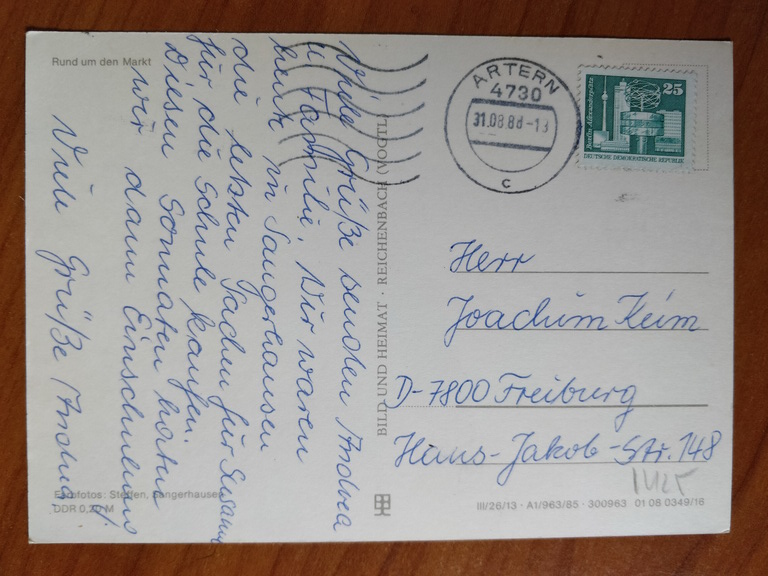 Rund um den Markt
Viele Grüße senden Andrea
u. Familie. Wir waren
heute in Sangerhausen
die letzten Sachen für Susann
für die Schule kaufen.
Diesen Sonnaten haben
wir dann Einschulung
Viele Grüße Andrea
Farbfotos: Steffen, Sangerhausen
DDR 0,20 M
BILD UND HEIMAT · REICHENBACH (VOGTL)
ARTERN
4730
31.08.88-13
c
Berlin, Alexanderplatz
25
DEUTSCHE DEMOKRATISCHE REPUBLIK
Herr
Joachim Keim
D-7800 Freiburg
Hans-Jakob-Str. 148
III/26/13 · A1/963/85 · 300963 01 08 0349/16